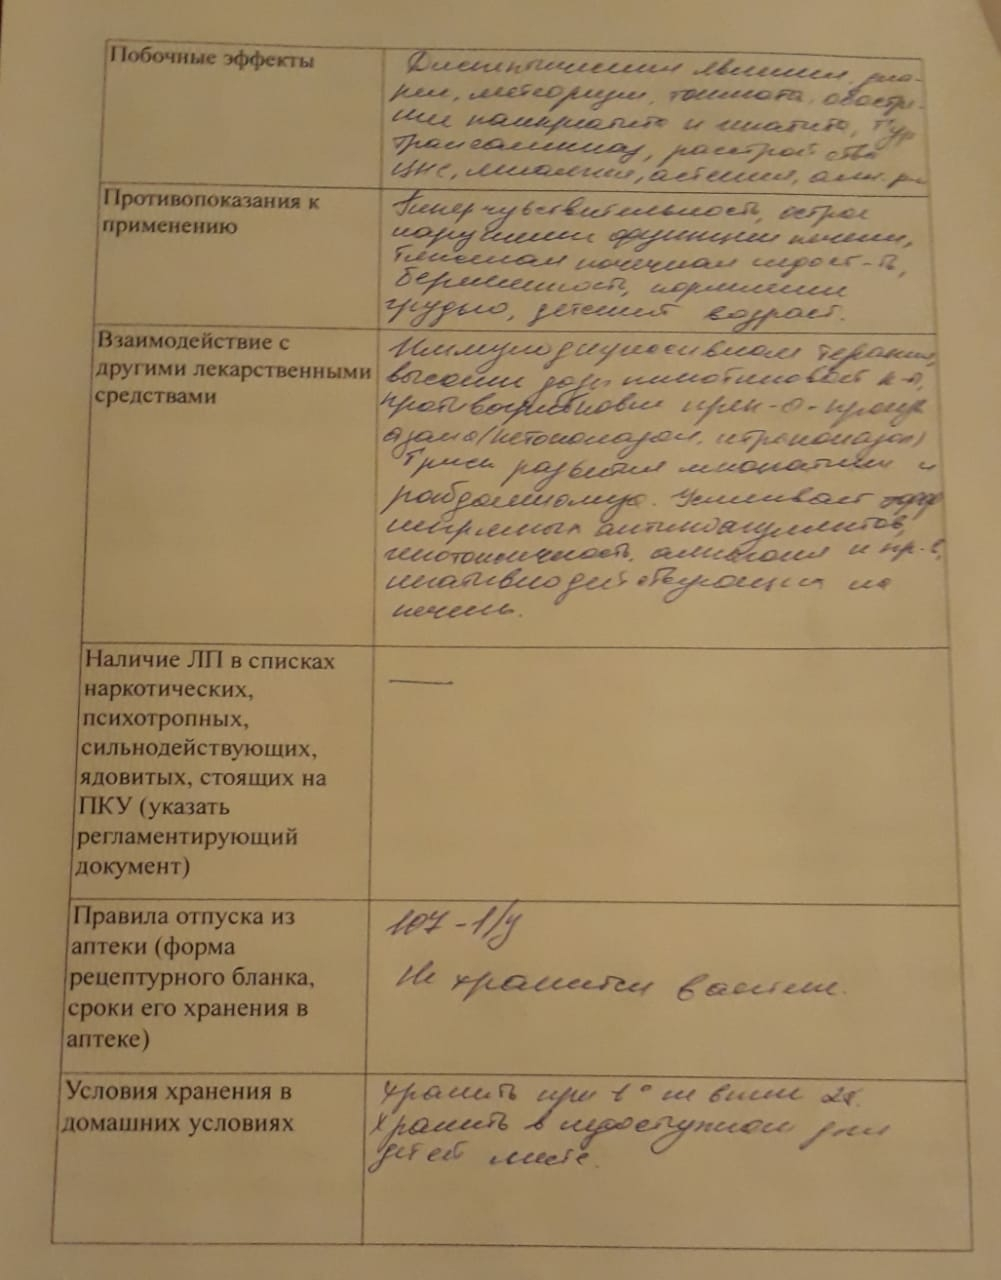 Побочные эффекты
Диспепсические явления, диа-
рея, метеоризм, тошнота, обостре-
ние панкреатита и гепатита, ↑ур
трансаминаз, расстройства
ЦНС, миалгия, астения, алл. р-и
Противопоказания к
применению
Гиперчувствительность, острое
нарушение функции печени,
тяжелая почечная недост-ть,
беременность, кормление
грудью, детский возраст.
Взаимодействие с
другими лекарственными
средствами
терапия,
высокие дозы никотиновой к-ы,
противогрибковые
азола (кетоконазол, итраконазол)
↑риск развития миопатии и
рабдомиолиза. Усиливает эфф
непрямых антикоагулянтов,
алкоголя и пр. в,
негативнодействующих на
печень.
Наличие ЛП в списках
наркотических,
психотропных,
сильнодействующих,
ядовитых, стоящих на
ПКУ (указать
регламентирующий
документ)
—
Правила отпуска из
аптеки (форма
рецептурного бланка,
сроки его хранения в
аптеке)
107-1/у
Не хранится в аптеке.
Условия хранения в
домашних условиях
Хранить при t° не выше 25.
Хранить в недоступном для
детей месте.